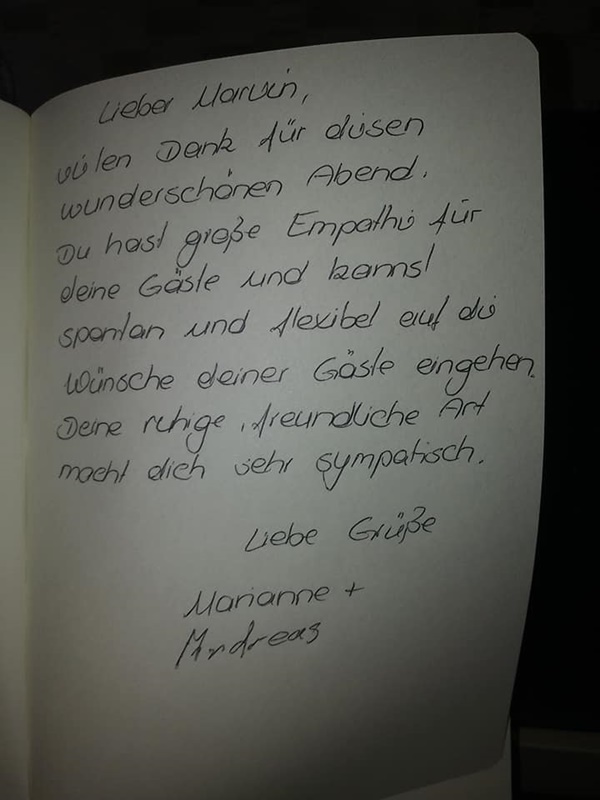 Lieber Marvin,
vielen Dank für diesen
wunderschönen Abend.
Du hast große Empathie für
deine Gäste und kannst
spontan und flexibel auf die
Wünsche deiner Gäste eingehen.
Deine ruhige, freundliche Art
macht dich sehr sympatisch.
Liebe Grüße
Marianne +
Andreas